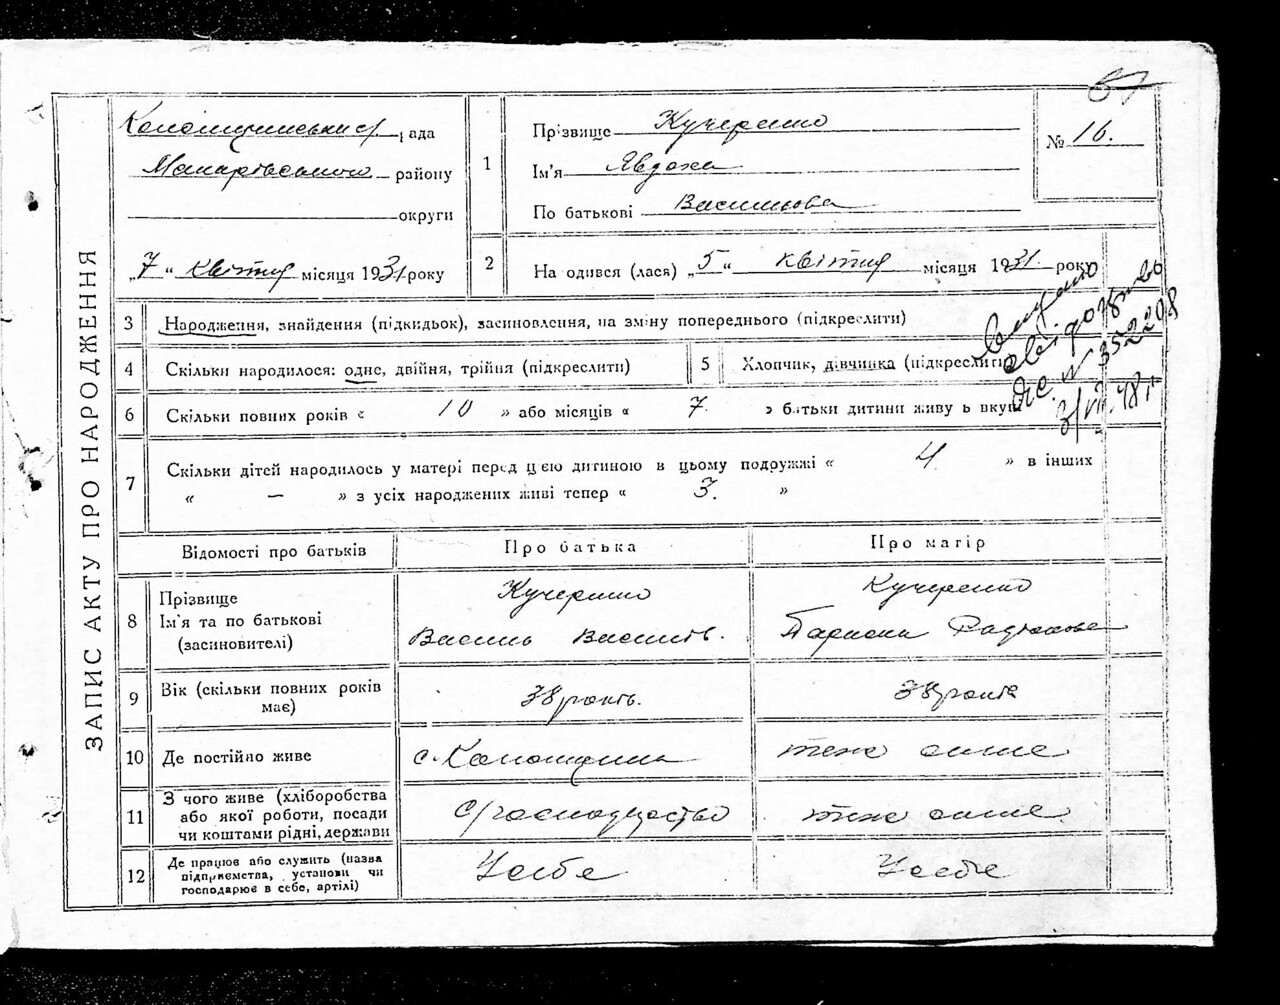 67
ЗАПИС АКТУ ПРО НАРОДЖЕННЯ
рада
Макарівського району
округи
„7“ квітня місяця 1931 року
1
Прізвище Кучеренко
Ім'я Явдоха
По батькові Василівна
№ 16.
2
На одився (лася) „5“ квітня місяця 1931. року
3 Народження, знайдення (підкидьок), засиновлення, на зміну попереднього (підкреслити)
4 Скільки народилося: одне, двійня, трійня (підкреслити)
5 Хлопчик, дівчинка (підкреслити
видано
свідоцтво
№ 352208
3/VII 48 г
6 Скільки повних років « 10 » або місяців « 7. » батьки дитини живу ь вкупі
7 Скільки дітей народилось у матері перед цією дитиною в цьому подружжі « 4. » в інших
« — » з усіх народжених живі тепер « 3. »
Відомості про батьків
Про батька
Про матір
8 Прізвище
Ім'я та по батькові
(засиновителі)
Кучеренко
Василь Василів.
Кучеренко
Параска
9 Вік (скільки повних років
має)
38 років.
38 років
10 Де постійно живе
с. Колонщина
теж саме
11 З чого живе (хліборобства
або якої роботи, посади
чи коштами рідні, держави
с/господарство
теж саме
12 Де працює або служить (назва
підприємства, установи чи
господарює в себе, артілі)
У себе
У себе